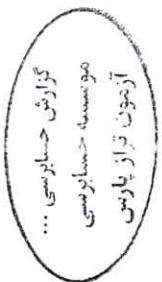 گزارش حسابرسی ...
موسسه حسابرسی
آزمون تراز پارس